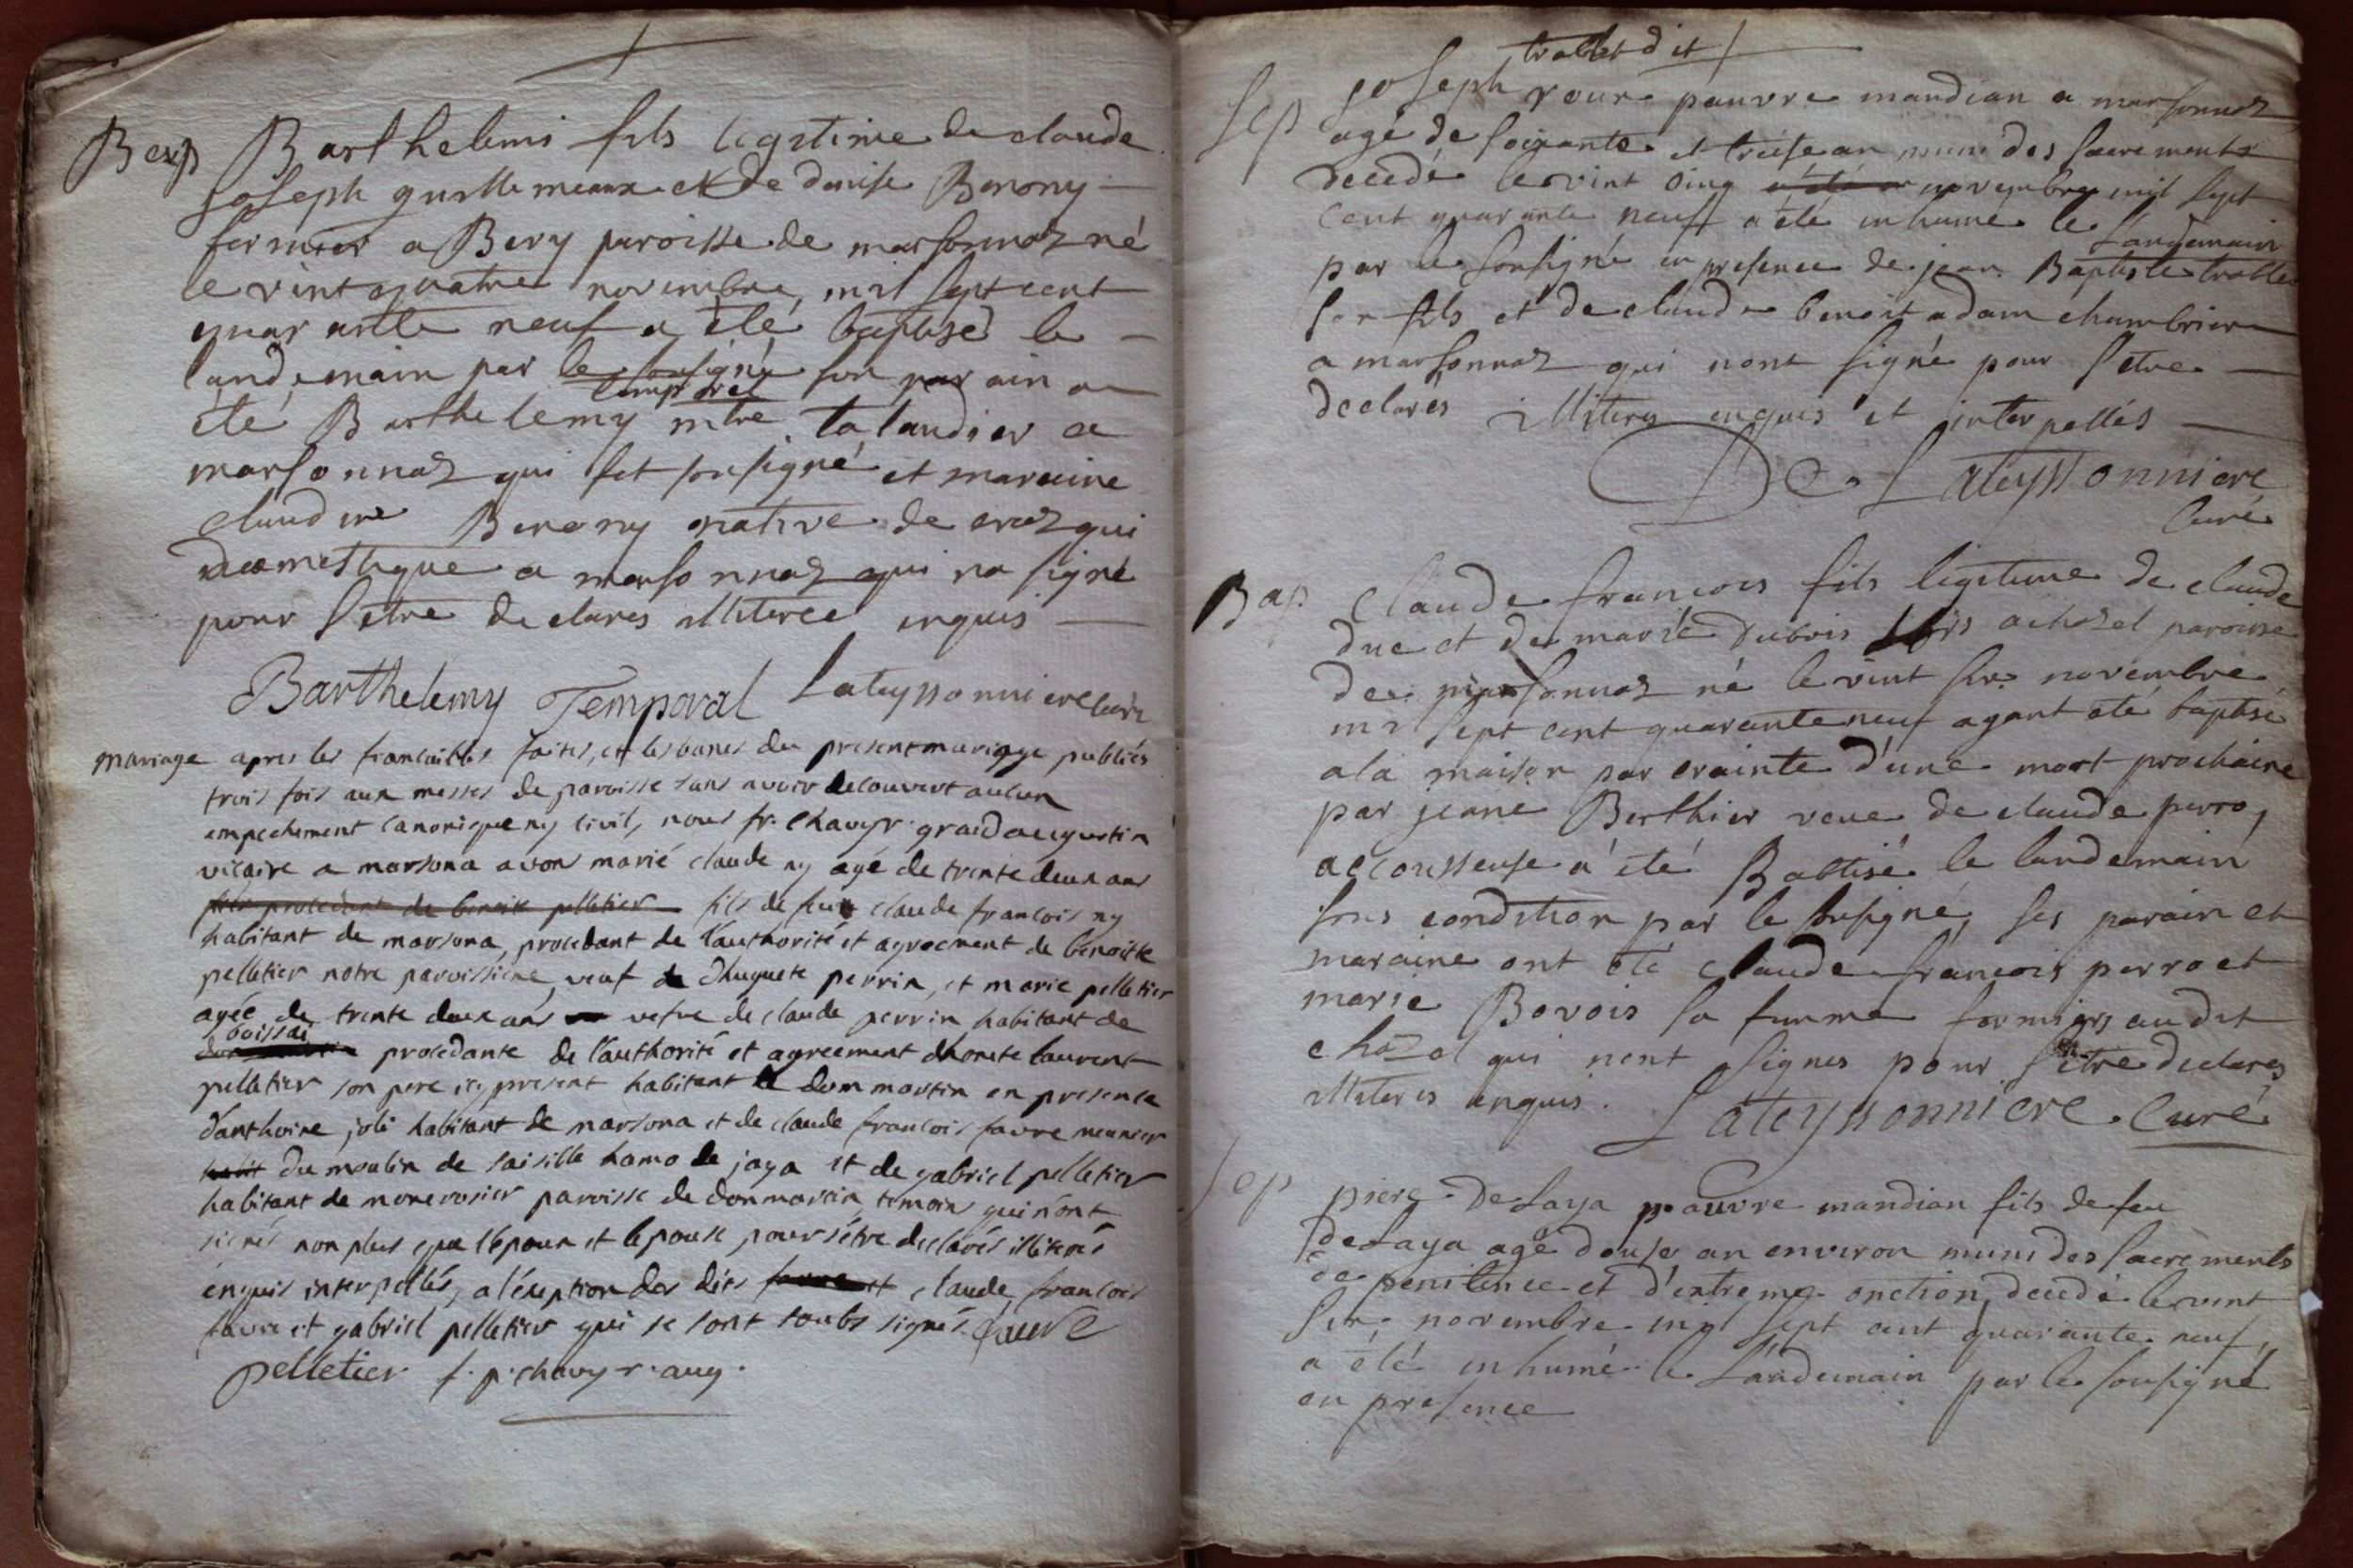 Bap Barthelemi fils legitime de claude
Joseph guillemeaux et de denise Borony
fermier a Bery paroisse de marsonnas né
le vint quatre novembre, mil sept cent
quarante neuf a été baptisé le
landemain par le sousigné son parain a
temporal
été Barthelemy mtre talandier a
marsonnas qui set sousigné et maraine
claudine Borony native de cras qui
domestique a marsonnas qui na signé
pour setre declares illiteree enquis
Barthelemy Temporal Lateyssonniere Curé
mariage apres les fiancailles faites, et les bancs du present mariage publiés
trois fois aux messes de paroisse sans avoir decouvert aucun
empechement canonique ny civil, nous fr. Chavy r. grand augustin
vicaire a marsona avons marié claude ny agé de trente deux ans
fils procedant de benoite pelletier fils de feu claude francois ny
habitant de marsona, procedant de l'authorité et agreement de benoitte
pelletier notre paroissiene, veuf de d'huguete perrin, et marie pelletier
agée de trente deux ans vefve de claude perrin habitant de
boissai
procedante de l'authorité et agreement dhonete laurent
pelletier son pere icy present habitant de dommartin en presence
d'anthoine joli habitant de marsona et de claude francois favre meunier
habit du moulin de saisille hamo de jaya et de gabriel pelletier
habitant de monrosier paroisse de donmartin, temoins qui n'ont
signés non plus que l'epoux et lepouse, pour s'étre declarés illiterés
enquis interpellés, a l'éxeption des dits favre et claude francois
favre et gabriel pelletier qui se sont soubs signés. favre
pelletier f. p. chavy r. aug.
trablet dit
Sep Joseph roux pauvre mandian a marsonnas
agé de soixante et treise an muni des sacrements
decedé le vint cinq a été novembre mil sept
cent quarante neuff a été inhumé le
landemain
par le sousigné en presence de jean Baptiste trablet
son fils et de claude benoit adam chambrier
a marsonnas qui nont signé pour setre
declarés illiteres enquis et interpellés
De Lateyssonniere
Curé
Bap Claude francois fils legitime de claude
duc et de marie Dubois a chazel paroisse
de marsonnas né le vint six novembre
mil sept cent quarante neuf ayant été baptisé
a la maison par crainte d'une mort prochaine
par jeane Berthier veue de claude perro,
accousseuse a été Battisé le landemain
sous condition par le sousigné, ses parain et
maraine ont été claude francois perro et
marie Bovois sa femme fermiers audit
chazel qui nont signes pour s'etre declares
illiteres enquis. Lateyssonniere. Curé
Sep piere Delaya pauvre mandian fils de feu
Delaya agé douse an environ muni des sacrements
de penitence et d'extreme onction, decedé le vint
six novembre mil sept cent quarante neuf,
a été inhumé le landemain par le sousigné
en presence